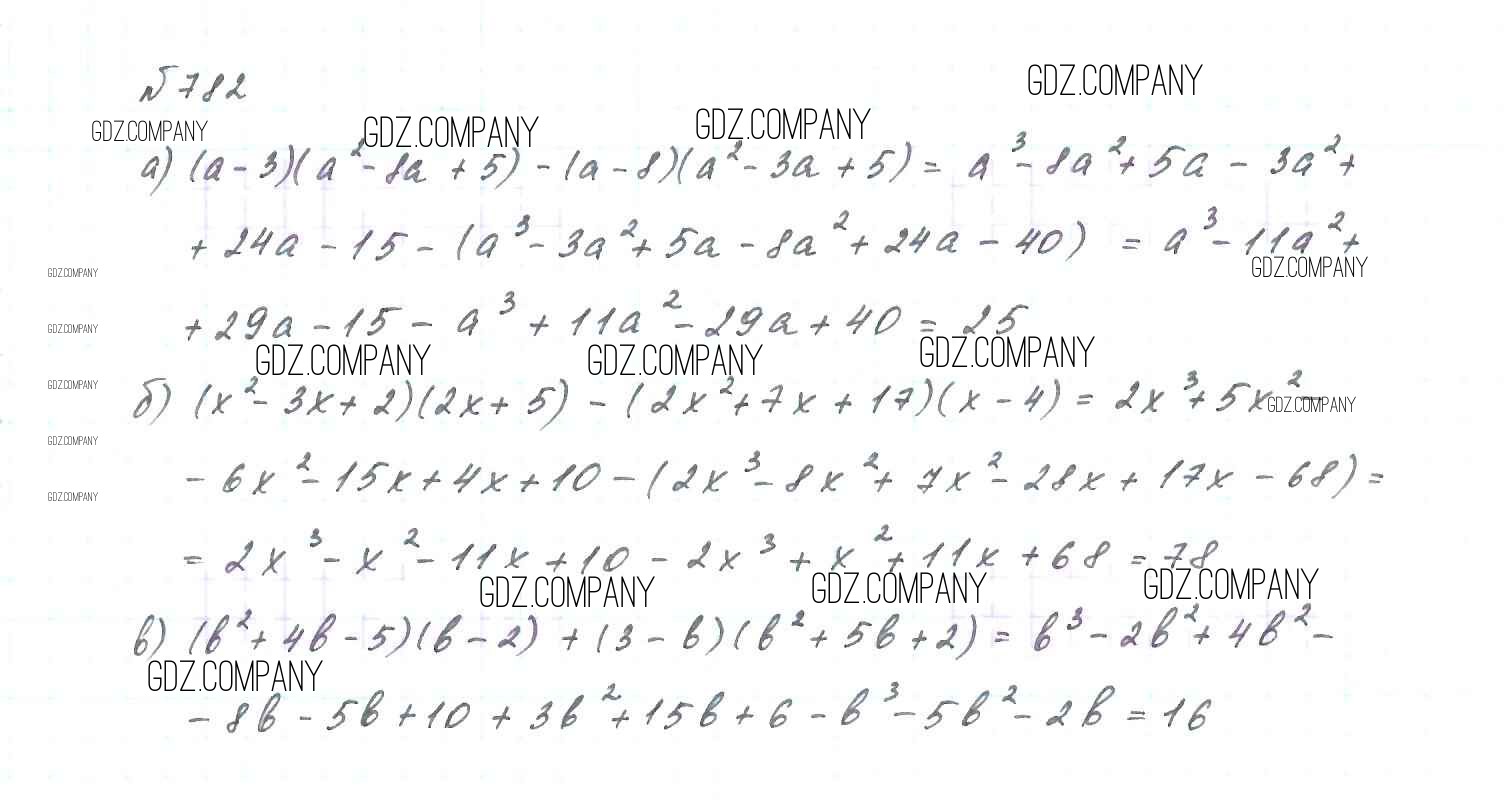 №782
GDZ.COMPANY
GDZ.COMPANY GDZ.COMPANY GDZ.COMPANY
а) (a-3)(a²-8a+5)-(a-8)(a²-3a+5)= a³-8a²+5a-3a²+
+24a-15-(a³-3a²+5a-8a²+24a-40) = a³-11a²+
GDZ.COMPANY GDZ.COMPANY
+29a-15-a³+11a²-29a+40=25
GDZ.COMPANY
GDZ.COMPANY GDZ.COMPANY GDZ.COMPANY
GDZ.COMPANY
б) (x²-3x+2)(2x+5)-(2x²+7x+17)(x-4)=2x³+5x²-
GDZ.COMPANY
GDZ.COMPANY
-6x²-15x+4x+10-(2x³-8x²+7x²-28x+17x-68)=
GDZ.COMPANY
=2x³-x²-11x+10-2x³+x²+11x+68=78
GDZ.COMPANY GDZ.COMPANY GDZ.COMPANY
в) (b²+4b-5)(b-2)+(3-b)(b²+5b+2)=b³-2b²+4b²-
GDZ.COMPANY
-8b-5b+10+3b²+15b+6-b³-5b²-2b=16